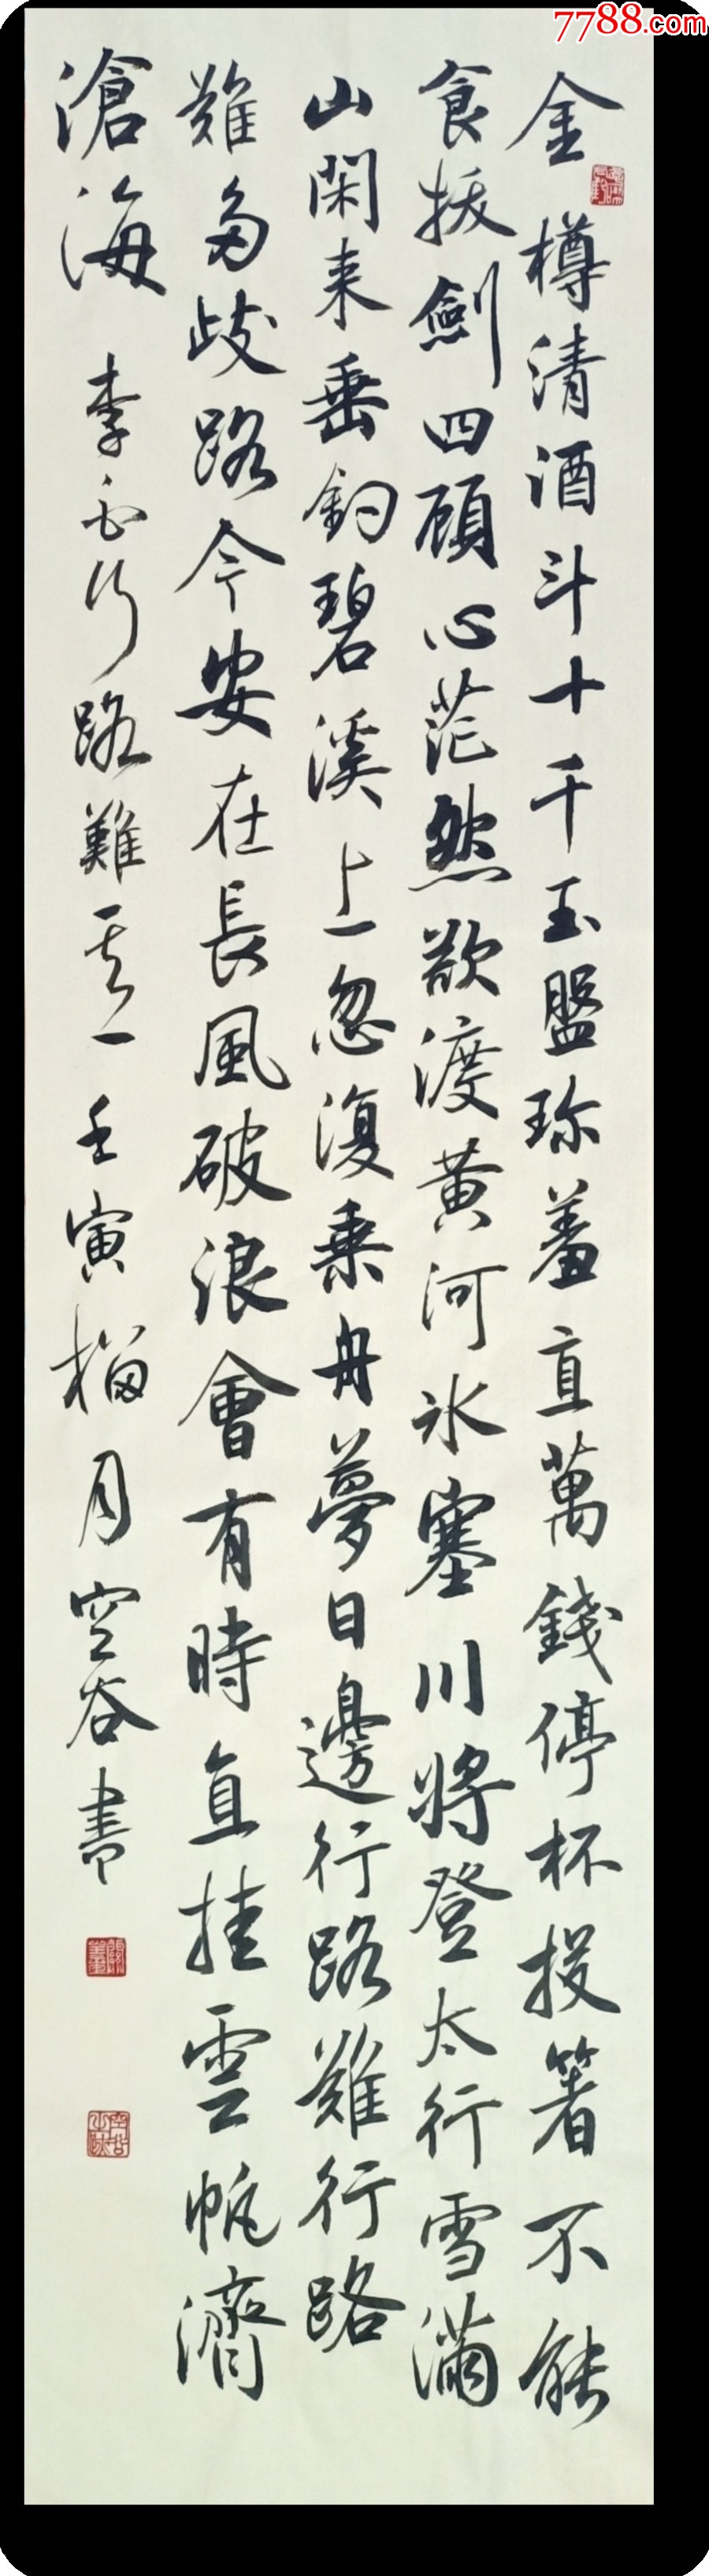 7788.com
金樽清酒斗十千玉盤珎羞直萬錢停杯投箸不能
食拔劍四顧心茫然欲渡黄河冰塞川將登太行雪滿
山閑来垂釣碧溪上忽復乗舟夢日邊行路難行路
難多歧路今安在長風破浪會有時直挂雲帆濟
滄海 李白行路難其一 壬寅榴月空谷書